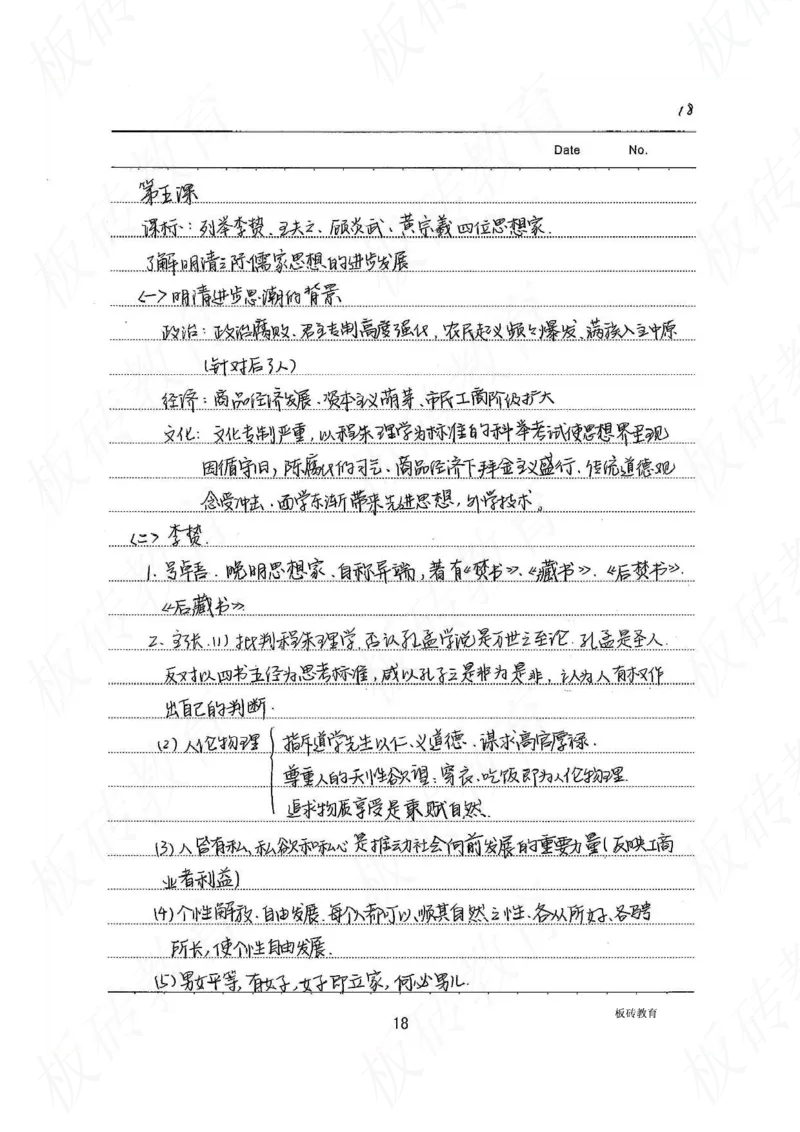 18
Date No.
第五课
课标：列举李贽、王夫之、顾炎武、黄宗羲四位思想家.
了解明清之际儒家思想的进步发展
<一>明清进步思潮的背景
政治：政治腐败、君主专制高度强化，农民起义频々爆发、满族入主中原
(针对后3人)
经济：商品经济发展、资本主义萌芽、市民工商阶级扩大
文化：文化专制严重，以程朱理学为标准的科举考试使思想界呈现
因循守旧，陈腐化的习气、商品经济下拜金主义盛行、传统道德观
念受冲击、西学东渐带来先进思想，外学技术。
<二>李贽.
1、号卓吾．晚明思想家、自称异端，著有《焚书》、《藏书》、《后焚书》.
《后藏书》
2、主张.(1)批判程朱理学，否认孔孟学说是万世之至论．孔孟是圣人.
反对以四书五经为思考标准，咸以孔子之是非为是非，认为人有权作
出自己的判断．
(2)人伦物理 指斥道学先生以仁、义道德．谋求高官厚禄．
尊重人的天性欲望：穿衣、吃饭即为人伦物理.
追求物质享受是秉赋自然．
(3)人皆有私，私欲和私心是推动社会向前发展的重要力量(反映工商
业者利益)
(4)个性解放、自由发展．每个人都可以顺其自然之性、各从所好、各骋
所长，使个性自由发展．
(5)男女平等，有好子，女子即立家，何必男儿.
板砖教育
18